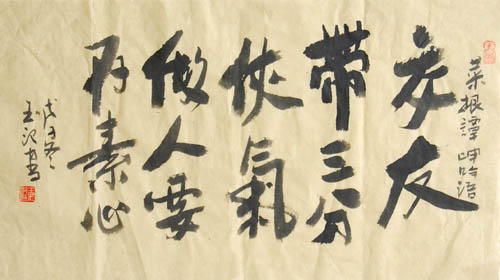 菜根譚 呻吟語
交友
帶三分
俠氣
做人要
存素心
戊子冬